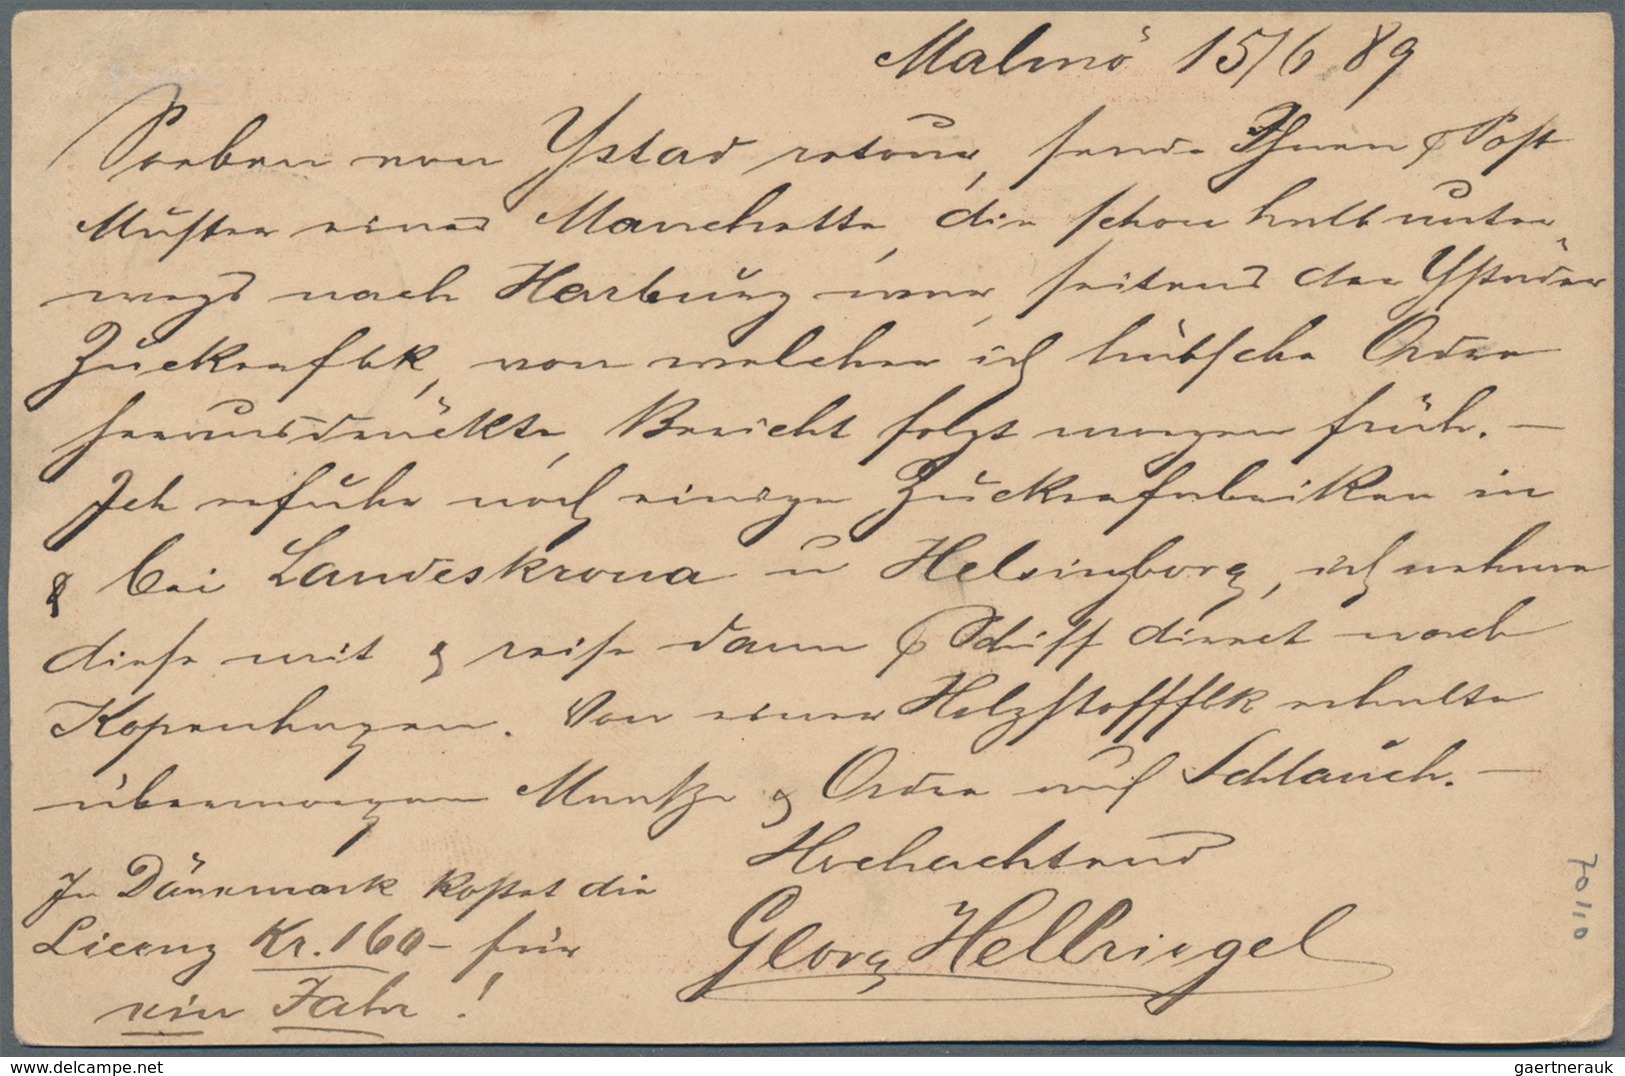 Malmö 15/6 89
Soeben von Ystad retour, sende Ihnen p Post
Muster einer Manchette, die schon halb unter-
wegs nach Harburg war, seitens der Ystader
Zuckerfbk, von welcher ich hübsche Ordre
herausdrückte, Bericht folgt morgen früh. —
Ich erfuhr noch einige Zuckerfabriken in
& bei Landeskrona u Helsingborg, ich nehme
diese mit & reise dann p Schiff direct nach
Kopenhagen. Von einer Holzstofffbk erhalte
übermorgen Muster & Ordre auf Schlauch. —
Hochachtend
Georg Hellriegel
In Dänemark kostet die
Licenz Kr. 160 – für
ein Jahr!
70110
www.delcampe.net
gaertnerauk